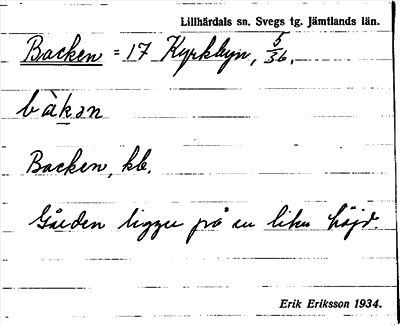 Lillhärdals sn. Svegs tg. Jämtlands län.
Backen = 17 Kyrkbyn, 5/36.
bàkən
Backen, kb.
Gården ligger på en liten höjd.
Erik Eriksson 1934.